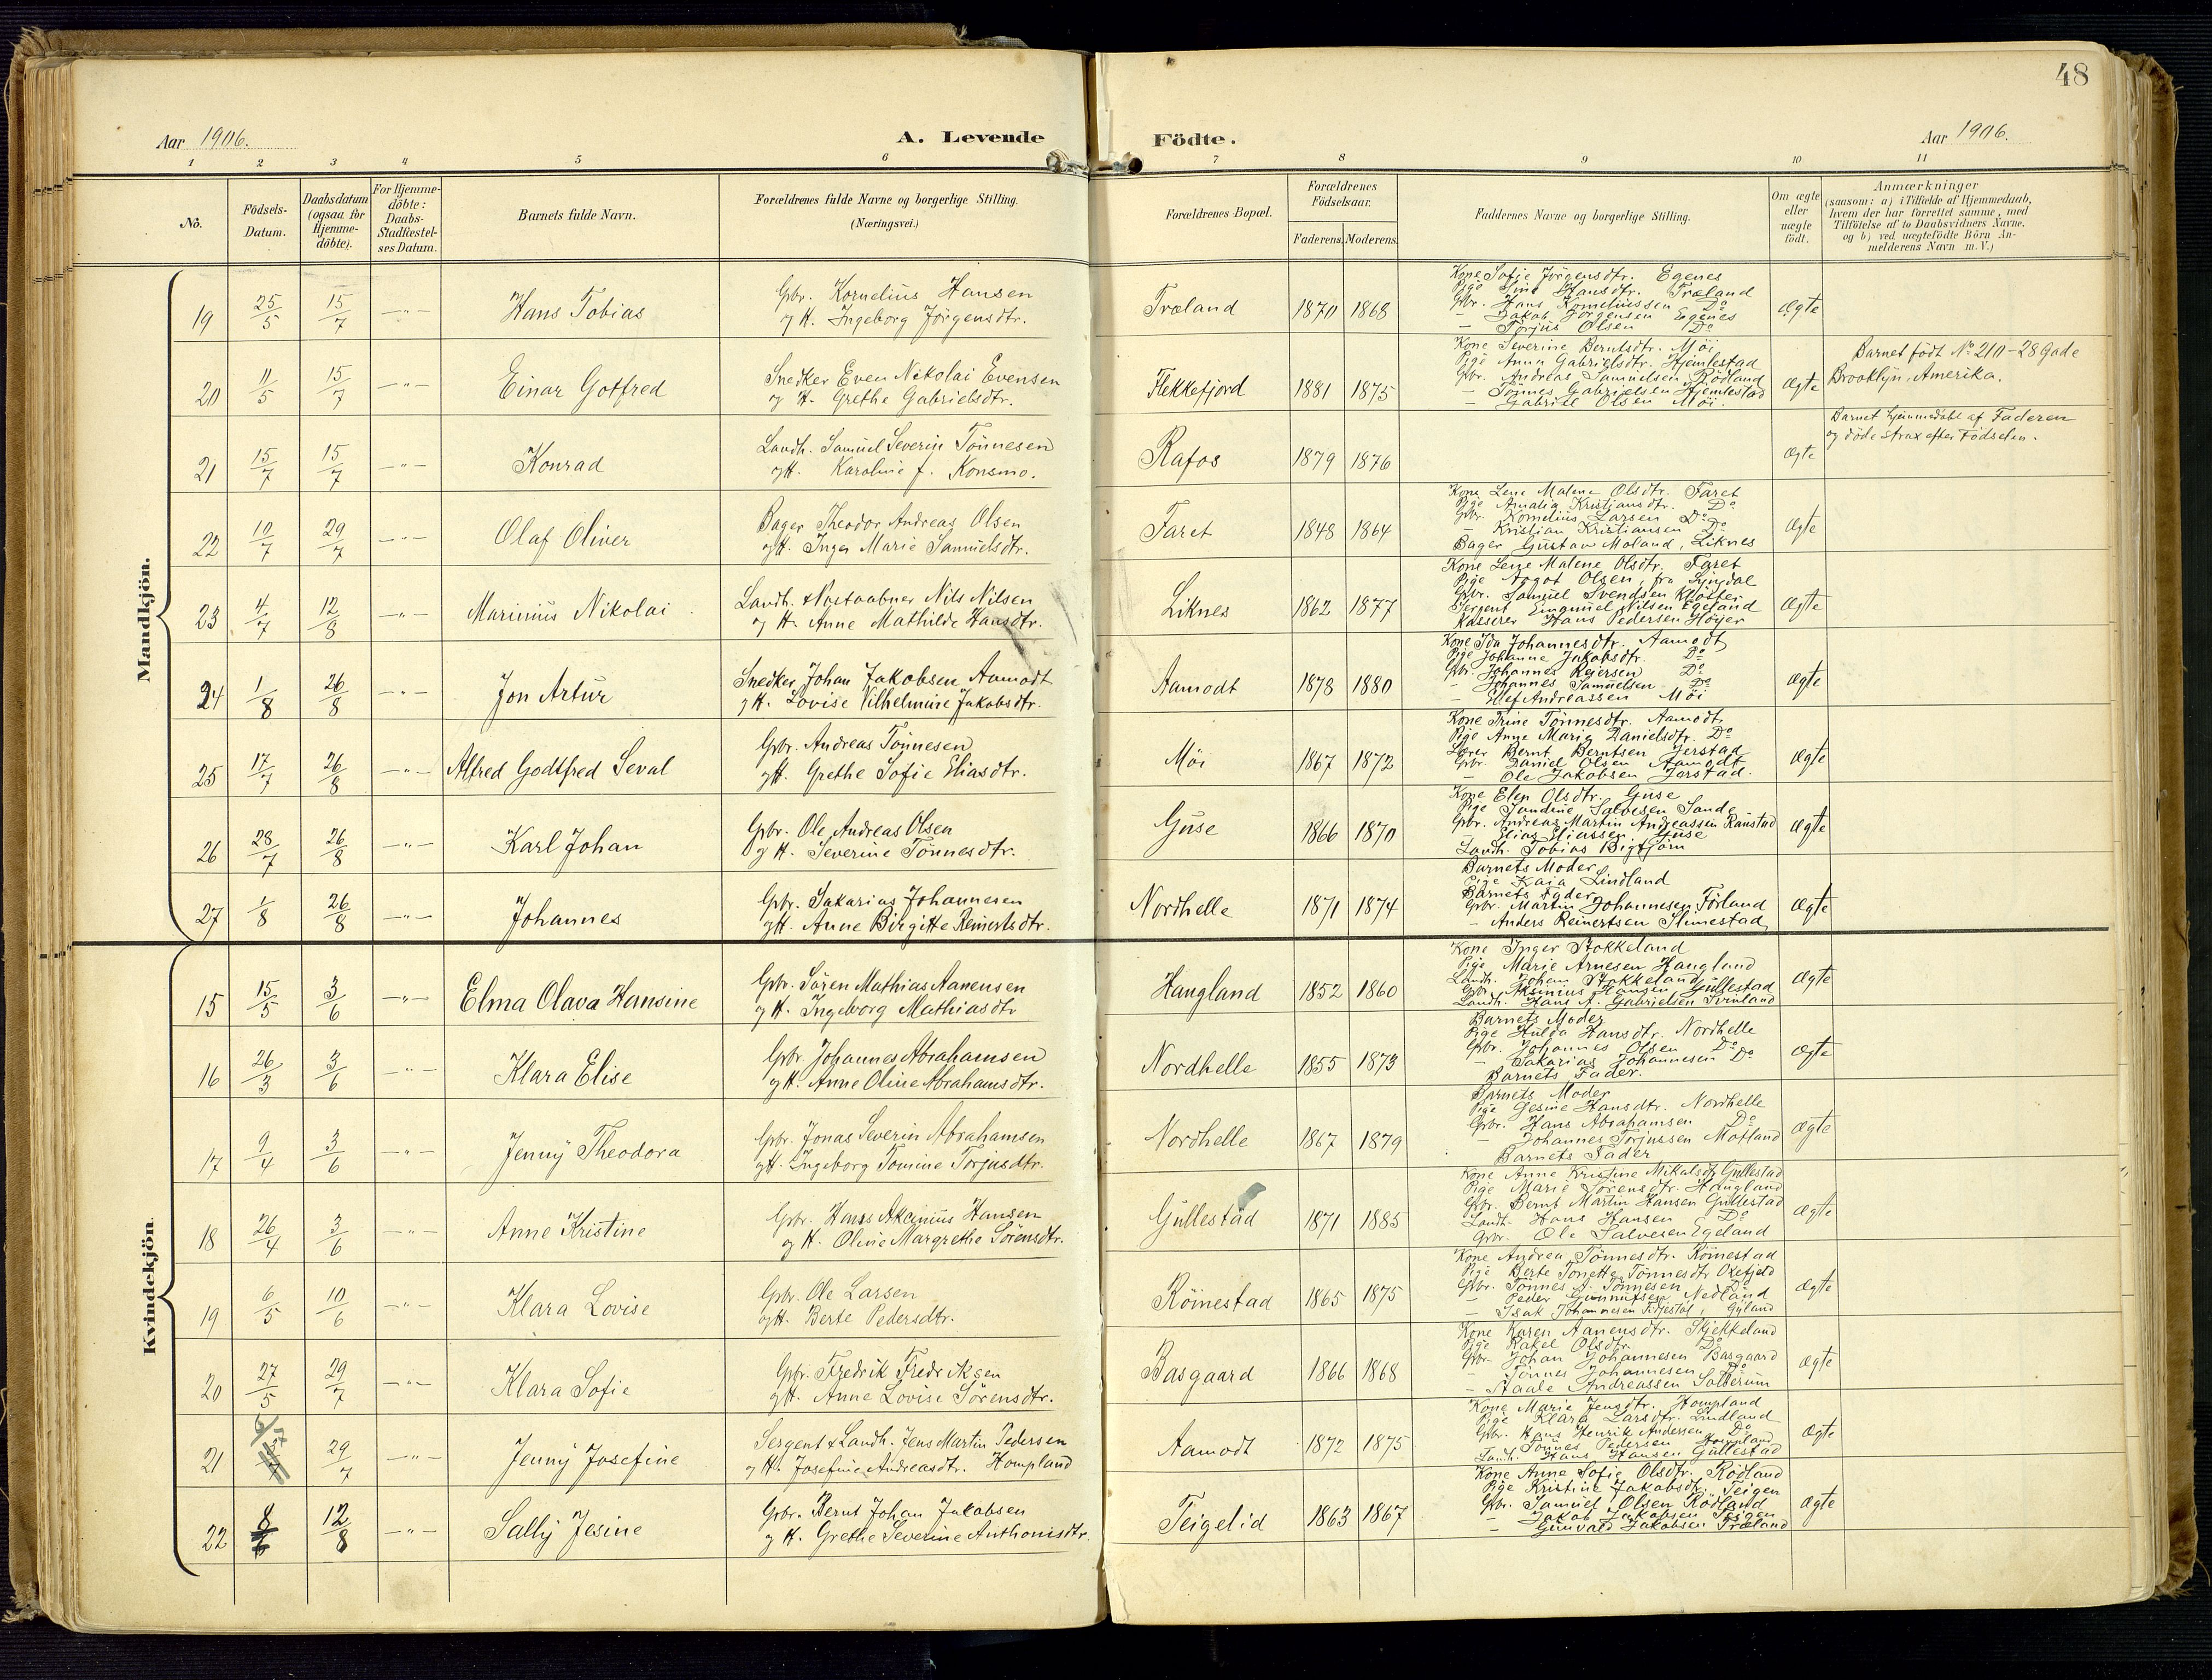 48
Aar 1906.
A. Levende Födte.
Aar 1906.
1 2 3 4 5 6 7 8 9 10 11
No.
Födsels-Datum.
Daabsdatum (ogsaa for Hjemme-döbte).
For Hjemme-döbte: Daabs-Stadfæstel-ses Datum.
Barnets fulde Navn.
Forældrenes fulde Navne og borgerlige Stilling.
(Næringsvei.)
Forældrenes Bopæl.
Forældrenes Födselsaar.
Faderens. Moderens.
Faddernes Navne og borgerlige Stilling.
Om ægte eller uægte födt.
Anmærkninger
(saasom: a) i Tilfælde af Hjemmedaab, hvem der har forrettet samme, med Tilföielse af to Daabsvidners Navne, og b) ved uægtefödte Börn An-melderens Navn m. V.)
Mandkjön.
19 25/5 15/7 -"- Hans Tobias
Gbr. Kornelius Hansen
og H. Ingeborg Jörgensdtr.
Træland 1870 1868
Kone Sofie Jörgensdtr. Egenes
Pige Sine Hansdtr. Træland
Gbr. Hans Korneliussen Do
- Jakob Jörgensen Egenes
- Torjus Olsen Do
Ægte
20 11/5 15/7 -"- Einar Gotfred
Snedker Even Nikolai Evensen
og H. Grethe Gabrielsdtr.
Flekkefjord 1881 1875
Kone Severine Berntsdtr. Möi
Pige Anna Gabrielsdtr. Hjemlestad
Gbr. Andreas Samuelsen Rödland
- Tönnes Gabrielsen Hjemlestad
- Gabriel Olsen Möi.
Ægte
Barnet födt No 210-28 Gade
Brooklyn, Amerika.
21 15/7 15/7 -"- Konrad
Landh. Samuel Severin Tönnesen
og H. Karoline f. Konsmo.
Rafos 1879 1876
Ægte
Barnet hjemmedöbt af Faderen
og döde strax efter Födselen.
22 10/7 29/7 -"- Olaf Oliver
Bager Theodor Andreas Olsen
og H. Inger Marie Samuelsdtr.
Faret 1848 1864
Kone Lene Malene Olsdtr. Faret
Pige Amalia Kristiansdtr. Do
Gbr. Kornelius Larsen Do
- Kristian Kristiansen Do
Bager Gustav Moland, Liknes
Ægte
23 4/7 12/8 -"- Marinius Nikolai
Landh. & Postaabner Nils Nilsen
og H. Anne Mathilde Hansdtr.
Liknes 1862 1877
Kone Lene Malene Olsdtr. Faret
Pige Aagot Olsen, fra Lyngdal
Gbr. Samuel Svendsen Kloster
Sergent Emanuel Nilsen Egeland
Kasserer Hans Pedersen Höyer
Ægte
24 1/8 26/8 -"- Jon Artur
Snedker Johan Jakobsen Aamodt
og H. Lovise Vilhelmine Jakobsdtr.
Aamodt 1878 1880
Kone Ida Johannesdtr. Aamodt
Pige Johanne Jakobsdtr. Do
Gbr. Johannes Reiersen Do
- Johannes Samuelsen Do
- Ellef Andreassen Möi
Ægte
25 17/7 26/8 -"- Alfred Godtfred Seval
Gbr. Andreas Tönnesen
og H. Grethe Sofie Eliasdtr.
Möi 1867 1872
Kone Trine Tönnesdtr. Aamodt
Pige Anne Marie Danielsdtr. Do
Lærer Bernt Berntsen Jerstad
Gbr. Daniel Olsen Aamodt
- Ole Jakobsen Jerstad.
Ægte
26 28/7 26/8 -"- Karl Johan
Gbr. Ole Andreas Olsen
og H. Severine Tönnesdtr.
Guse 1866 1870
Kone Elen Olsdtr. Guse
Pige Jandine Salvesen Sande
Gbr. Andreas Martin Andreassen Raustad
- Elias Eliassen Guse
Landh. Tobias
Ægte
27 1/8 26/8 -"- Johannes
Gbr. Sakarias Johannesen
og H. Anne Birgitte Reinertsdtr.
Nordhelle 1871 1874
Barnets Moder
Pige Kaia Lindland
Barnets Fader
Gbr. Martin Johannesen Förland
- Anders Reinertsen Slimestad
Ægte
Kvindekjön.
15 15/5 3/6 -"- Elma Olava Hansine
Gbr. Sören Mathias Aanensen
og H. Ingeborg Mathiasdtr
Haugland 1852 1860
Kone Inger Stokkeland
Pige Marie Arnesen Haugland
Landh. Johan Stokkeland
Gbr. Aksinius Hansen Gullestad
Landh. Hans A. Gabrielsen
Ægte
16 26/3 3/6 -"- Klara Elise
Gbr. Johannes Abrahamsen
og H. Anne Oline Abrahamsdtr.
Nordhelle 1855 1873
Barnets Moder
Pige Hulda Hansdtr. Nordhelle
Gbr. Johannes Olsen Do
- Sakarias Johannesen Do
Barnets Fader.
Ægte
17 9/4 3/6 -"- Jenny Theodora
Gbr. Jonas Severin Abrahamsen
og H. Ingeborg Tomine Torjusdtr.
Nordhelle 1867 1879
Barnets Moder
Pige Gesine Hansdtr. Nordhelle
Gbr. Hans Abrahamsen Do
- Johannes Torjussen Motland
Barnets Fader
Ægte
18 26/4 3/6 -"- Anne Kristine
Gbr. Hans Aksinius Hansen
og H. Oline Margrethe Sörensdtr.
Gullestad 1871 1885
Kone Anne Kristine Mikalsdtr Gullestad
Pige Marie Sörensdtr. Haugland
Gbr. Bernt Martin Hansen Gullestad
Landh. Hans Hansen Do
Gbr. Ole Salvesen Egeland
Ægte
19 6/5 10/6 -"- Klara Lovise
Gbr. Ole Larsen
og H. Berte Pedersdtr.
Röinestad 1865 1875
Kone Andrea Tönnesdtr. Röinestad
Pige Berte Tonette Tönnesdtr Oxefjeld
Gbr. Tönnes A. Tönnesen Do
- Peder Gunnufsen Nedland
- Isak Johannesen Fidjestöl, Gyland
Ægte
20 27/5 29/7 -"- Klara Sofie
Gbr. Fredrik Fredriksen
og H. Anne Lovise Sörensdtr.
Basgaard 1866 1868
Kone Karen Aanensdtr. Skjekkeland
Pige Rakel Olsdtr. Do
Gbr. Johan Johannesen Basgaard
- Tönnes Johannesen Do
- Staale Andreassen Solberum
Ægte
21 6/7 29/7 -"- Jenny Josefine
Sergent & Landh. Jens Martin Pedersen
og H. Josefine Andreasdtr. Hompland
Aamodt 1872 1875
Kone Marie Jensdtr. Hompland
Pige Klara Larsdtr. Lindland
Gbr. Hans Henrik Andersen Do
- Tönnes Pedersen Hompland
Landh. Hans Hansen Gullestad
Ægte
22 8/6 12/8 -"- Sally Jesine
Gbr. Bernt Johan Jakobsen
og H. Grethe Severine Anthonisdtr.
Teigelid 1863 1867
Kone Anne Sofie Olsdtr. Rödland
Pige Kristine Jakobsdtr. Teigen
Gbr. Samuel Olsen Rödland
- Jakob Jakobsen Teigen
- Gunvald Jakobsen Træland
Ægte